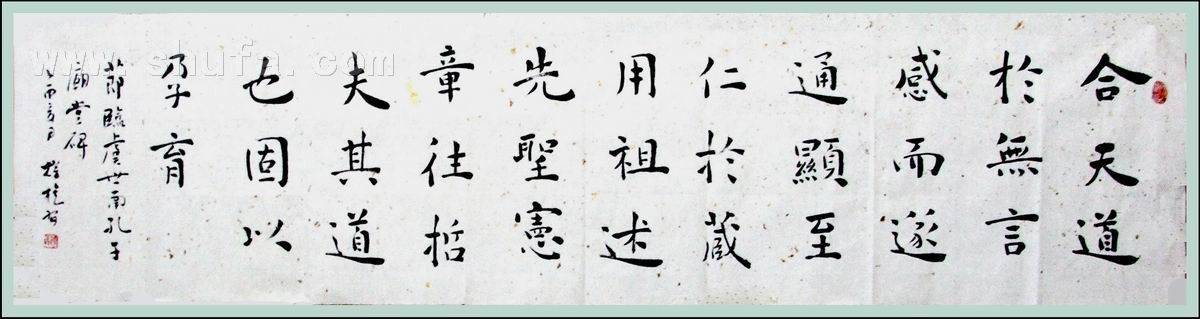 合天道
於無言
感而遂
通顯至
仁於藏
用祖述
先聖憲
章往哲
夫其道
也固以
孕育
節臨虞世南孔子
廟堂碑
www.shufa.com